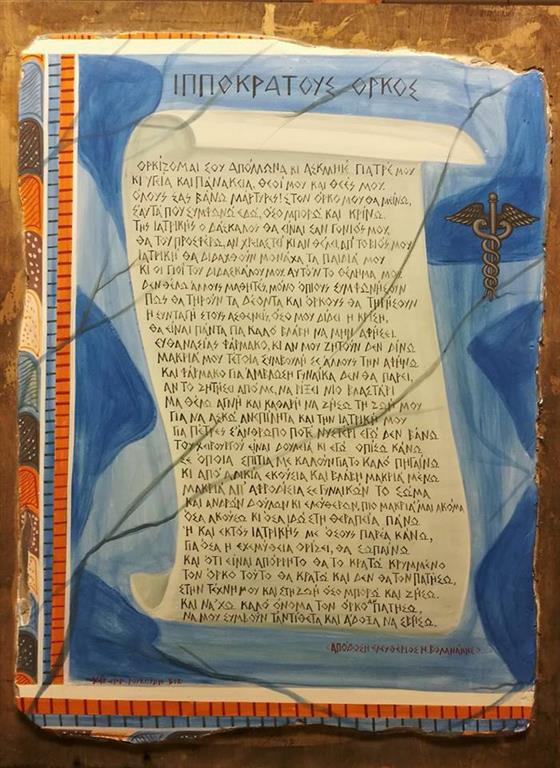 ΙΠΠΟΚΡΑΤΟΥΣ ΟΡΚΟΣ
ΟΡΚΙΖΟΜΑΙ ΣΟΥ ΑΠΟΛΛΩΝΑ ΚΙ ΑΣΚΛΗΠΙΕ ΓΙΑΤΡΕ ΜΟΥ
ΚΙ ΥΓΕΙΑ ΚΑΙ ΠΑΝΑΚΕΙΑ, ΘΕΟΙ ΜΟΥ ΚΑΙ ΘΕΕΣ ΜΟΥ.
ΟΛΟΥΣ ΣΑΣ ΒΑΝΩ ΜΑΡΤΥΡΕΣ! ΣΤΟΝ ΟΡΚΟ ΜΟΥ ΘΑ ΜΕΙΝΩ,
Σ'ΑΥΤΑ ΠΟΥ ΣΥΜΦΩΝΩ ΕΔΩ, ΟΣΟ ΜΠΟΡΩ ΚΑΙ ΚΡΙΝΩ.
ΤΗΣ ΙΑΤΡΙΚΗΣ Ο ΔΑΣΚΑΛΟΣ ΘΑ ΕΙΝΑΙ ΣΑΝ ΓΟΝΙΟΣ ΜΟΥ,
ΘΑ ΤΟΥ ΠΡΟΣΦΕΡΩ, ΑΝ ΧΡΕΙΑΣΤΕΙ ΚΙ ΑΝ ΘΕΛΕΙ ΑΠ' ΤΟ ΒΙΟΣ ΜΟΥ
ΙΑΤΡΙΚΗ ΘΑ ΔΙΔΑΧΘΟΥΝ ΜΟΝΑΧΑ ΤΑ ΠΑΙΔΙΑ ΜΟΥ
ΚΙ ΟΙ ΓΙΟΙ ΤΟΥ ΔΙΔΑΣΚΑΛΟΥ ΜΟΥ. ΑΥΤΟ ΝΑΙ ΤΟ ΘΕΛΗΜΑ ΜΟΥ.
ΔΕΝ ΘΕΛΩ ΑΛΛΟΥΣ ΜΑΘΗΤΕΣ, ΜΟΝΟ ΟΠΙΟΥΣ ΣΥΜΦΩΝΗΣΟΥΝ
ΠΩΣ ΘΑ ΤΗΡΟΥΝ ΤΑ ΔΕΟΝΤΑ ΚΑΙ ΟΡΚΟΥΣ ΘΑ ΤΗΡΗΣΟΥΝ
Η ΣΥΝΤΑΓΗ ΣΤΟΥΣ ΑΣΘΕΝΕΙΣ, ΟΣΟ ΜΟΥ ΔΙΔΕΙ Η ΚΡΙΣΗ,
ΘΑ ΕΙΝΑΙ ΠΑΝΤΑ ΓΙΑ ΚΑΛΟ ΒΛΑΒΗ ΝΑ ΜΗΝ ΑΦΗΣΕΙ.
ΕΥΘΑΝΑΣΙΑΣ ΦΑΡΜΑΚΟ, ΚΙ ΑΝ ΜΟΥ ΖΗΤΟΥΝ ΔΕΝ ΔΙΝΩ
ΜΑΚΡΙΑ ΜΟΥ ΤΕΤΟΙΑ ΣΥΜΒΟΥΛΗ ΣΕ ΑΛΛΟΥΣ ΤΗΝ ΑΦΗΝΩ
ΚΑΙ ΦΑΡΜΑΚΟ ΓΙΑ ΑΜΒΛΩΣΗ ΓΥΝΑΙΚΑ ΔΕΝ ΘΑ ΠΑΡΕΙ,
ΑΝ ΤΟ ΖΗΤΗΣΕΙ ΑΠΟ ΜΕ, ΝΑ ΡΙΞΕΙ ΝΙΟ ΒΛΑΣΤΑΡΙ
ΜΑ ΘΕΛΩ ΑΓΝΗ ΚΑΙ ΚΑΘΑΡΗ ΝΑ ΖΗΣΩ ΤΗ ΖΩΗ ΜΟΥ
ΓΙΑ ΝΑ ΑΣΚΩ ΑΝΕΠΛΗΠΤΑ ΚΑΙ ΤΗΝ ΙΑΤΡΙΚΗ ΜΟΥ
ΓΙΑ ΠΕΤΡΕΣ Σ'ΑΝΘΡΩΠΟ ΠΟΤΕ ΝΥΣΤΕΡΙ ΕΓΩ ΔΕΝ ΒΑΝΩ
ΤΟΥ ΧΕΙΡΟΥΡΓΟΥ ΕΙΝΑΙ ΔΟΥΛΕΙΑ ΚΙ ΕΓΩ ΟΠΙΣΩ ΚΑΝΩ
ΣΕ ΟΠΟΙΑ ΣΠΙΤΙΑ ΜΕ ΚΑΛΟΥΝ ΓΙΑ ΤΟ ΚΑΛΟ ΠΗΓΑΙΝΩ
ΚΙ ΑΠΟ ΑΔΙΚΙΑ ΕΚΟΥΣΙΑ ΚΑΙ ΒΛΑΒΗ ΜΑΚΡΙΑ ΜΕΝΩ
ΜΑΚΡΙΑ ΑΠ' ΑΦΡΟΔΙΣΙΑ ΣΕ ΓΥΝΑΙΚΩΝ ΤΟ ΣΩΜΑ
ΚΑΙ ΑΝΔΡΩΝ ΔΟΥΛΩΝ ΚΙ ΕΛΕΥΘΕΡΩΝ, ΠΙΟ ΜΑΚΡΙΑ 'ΜΑΙ ΑΚΟΜΑ
ΟΣΑ ΑΚΟΥΣΩ ΚΙ ΟΣΑ ΙΔΩ ΣΤΗ ΘΕΡΑΠΕΙΑ ΠΑΝΩ
Ή ΚΑΙ ΕΚΤΟΣ ΙΑΤΡΙΚΗΣ ΜΕ ΟΣΟΥΣ ΠΑΡΕΑ ΚΑΝΩ,
ΓΙΑ ΟΣΑ Η ΕΧΕΜΥΘΕΙΑ ΟΡΙΖΕΙ, ΘΑ ΣΩΠΑΙΝΩ
ΚΑΙ Ο'ΤΙ ΕΙΝΑΙ ΑΠΟΡΡΗΤΟ ΘΑ ΤΟ ΚΡΑΤΩ ΚΡΥΜΜΕΝΟ
ΤΟΝ ΟΡΚΟ ΤΟΥΤΟ ΘΑ ΚΡΑΤΩ ΚΑΙ ΔΕΝ ΘΑ ΤΟΝ ΠΑΤΗΣΩ,
ΣΤΗΝ ΤΕΧΝΗ ΜΟΥ ΚΑΙ ΣΤΗ ΖΩΗ ΟΣΟ ΜΠΟΡΩ ΚΑΙ ΖΗΣΩ.
ΚΑΙ ΝΑ 'ΧΩ ΚΑΛΟ ΟΝΟΜΑ ΤΟΝ ΟΡΚΟ ΑΝ ΠΑΤΗΣΩ,
ΝΑ ΜΟΥ ΣΥΜΒΟΥΝ Τ'ΑΝΤΙΘΕΤΑ ΚΑΙ ΑΔΟΞΑ ΝΑ ΣΒΗΣΩ.
ΑΠΟΔΟΣΗ ΕΛΕΥΘΕΡΙΟΣ Μ.